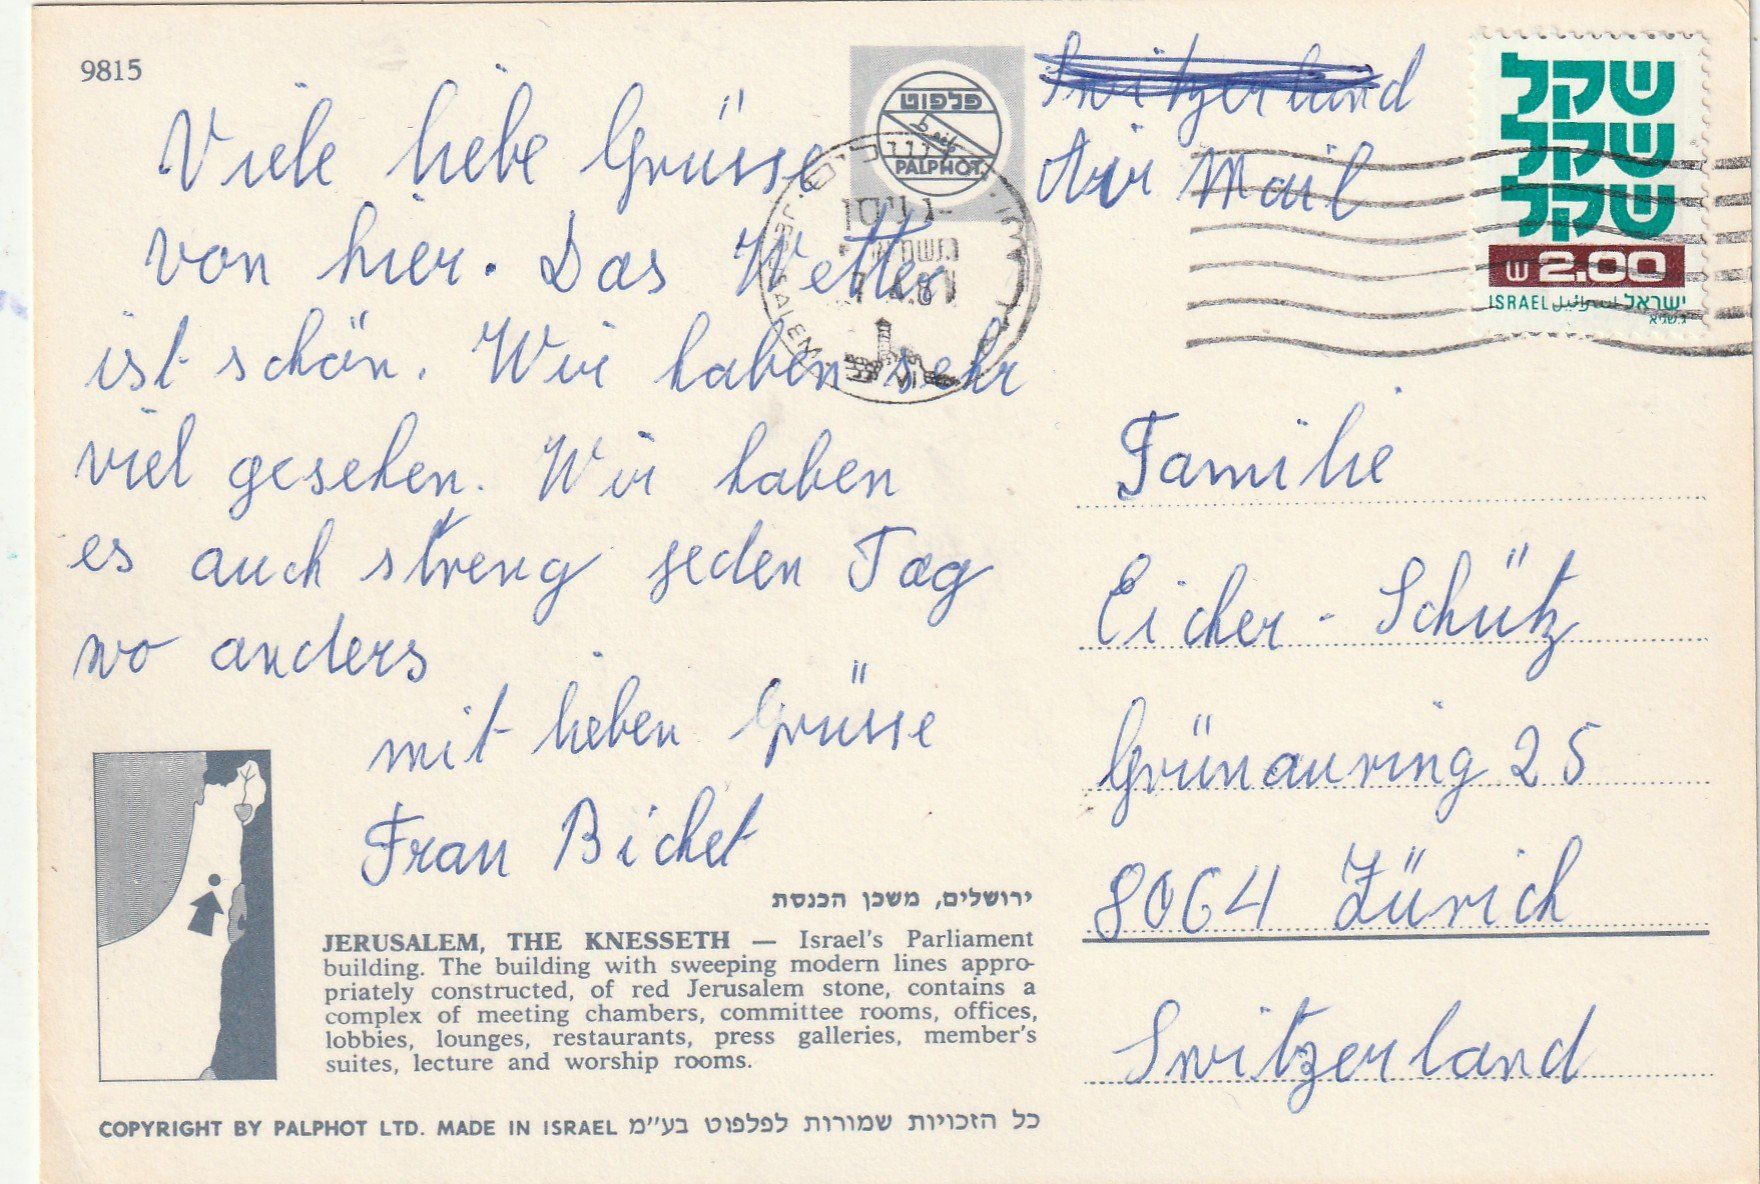 9815
Viele liebe Grüsse
von hier. Das Wetter
ist schön. Wir haben sehr
viel gesehen. Wir haben
es auch streng jeden Tag
wo anders
mit lieben Grüsse
Frau Bichet
ירושלים, משכן הכנסת
JERUSALEM, THE KNESSETH — Israel's Parliament
building. The building with sweeping modern lines appro-
priately constructed, of red Jerusalem stone, contains a
complex of meeting chambers, committee rooms, offices,
lobbies, lounges, restaurants, press galleries, member's
suites, lecture and worship rooms.
COPYRIGHT BY PALPHOT LTD. MADE IN ISRAEL כל הזכויות שמורות לפלפוט בע"מ
פלפוט
PALPHOT
JERUSALEM
Switzerland
Air Mail
שקל
שקל
שקל
ש 2.00
ISRAEL ישראל
Familie
Eicher - Schütz
Grünauring 25
8064 Zürich
Switzerland